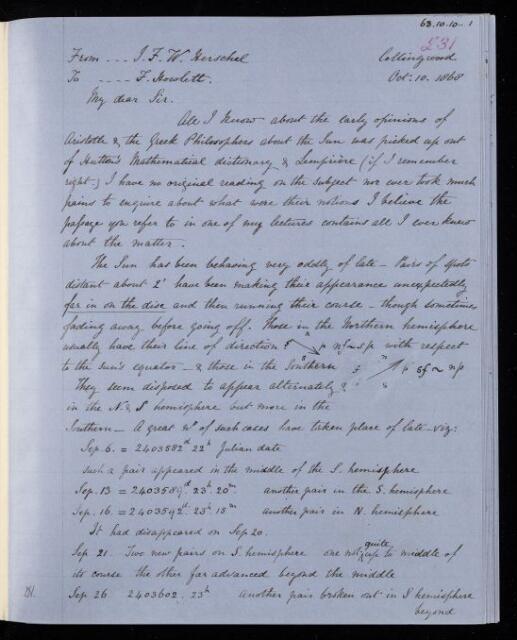 63.10.10..1
231
From --- J. F. W. Herschel Collingwood
To ---- F. Howlett. Oct: 10. 1868
My dear Sir.
All I know about the early opinions of
Aristotle & the Greek Philosophers about the Sun was picked up out
of Hutton's Mathematical dictionary & Lempriere (if I remember
right.) I have no original reading on the subject nor ever took much
pains to enquire about what were their notions I believe the
passage you refer to in one of my lectures contains all I ever knew
about the matter.
The Sun has been behaving very oddly of late – Pairs of spots
distant about 2' have been making their appearance unexpectedly
far in on the disc and then running their course – though sometimes
fading away before going off. Those in the Northern hemisphere
usually have their line of direction nf sp with respect
to the sun's equator – & those in the Southern sf np
They seem disposed to appear alternately
in the N. & S hemisphere but more in the
Southern – A great no. of such cases have taken place of late – viz:
Sep. 6. = 2403582d 22h Julian date
such a pair appeared in the middle of the S. hemisphere
Sep. 13 = 2403589d. 23h 20m. another pair in the S. hemisphere
Sep. 16. = 2403592d. 23h 15m another pair in N. hemisphere
It had disappeared on Sep 20.
Sep 21. Two new pairs on S. hemisphere one not quite up to middle of
its course the other far advanced beyond the middle
Sep 26 2403602. 23h another pair broken out in S hemisphere
beyond